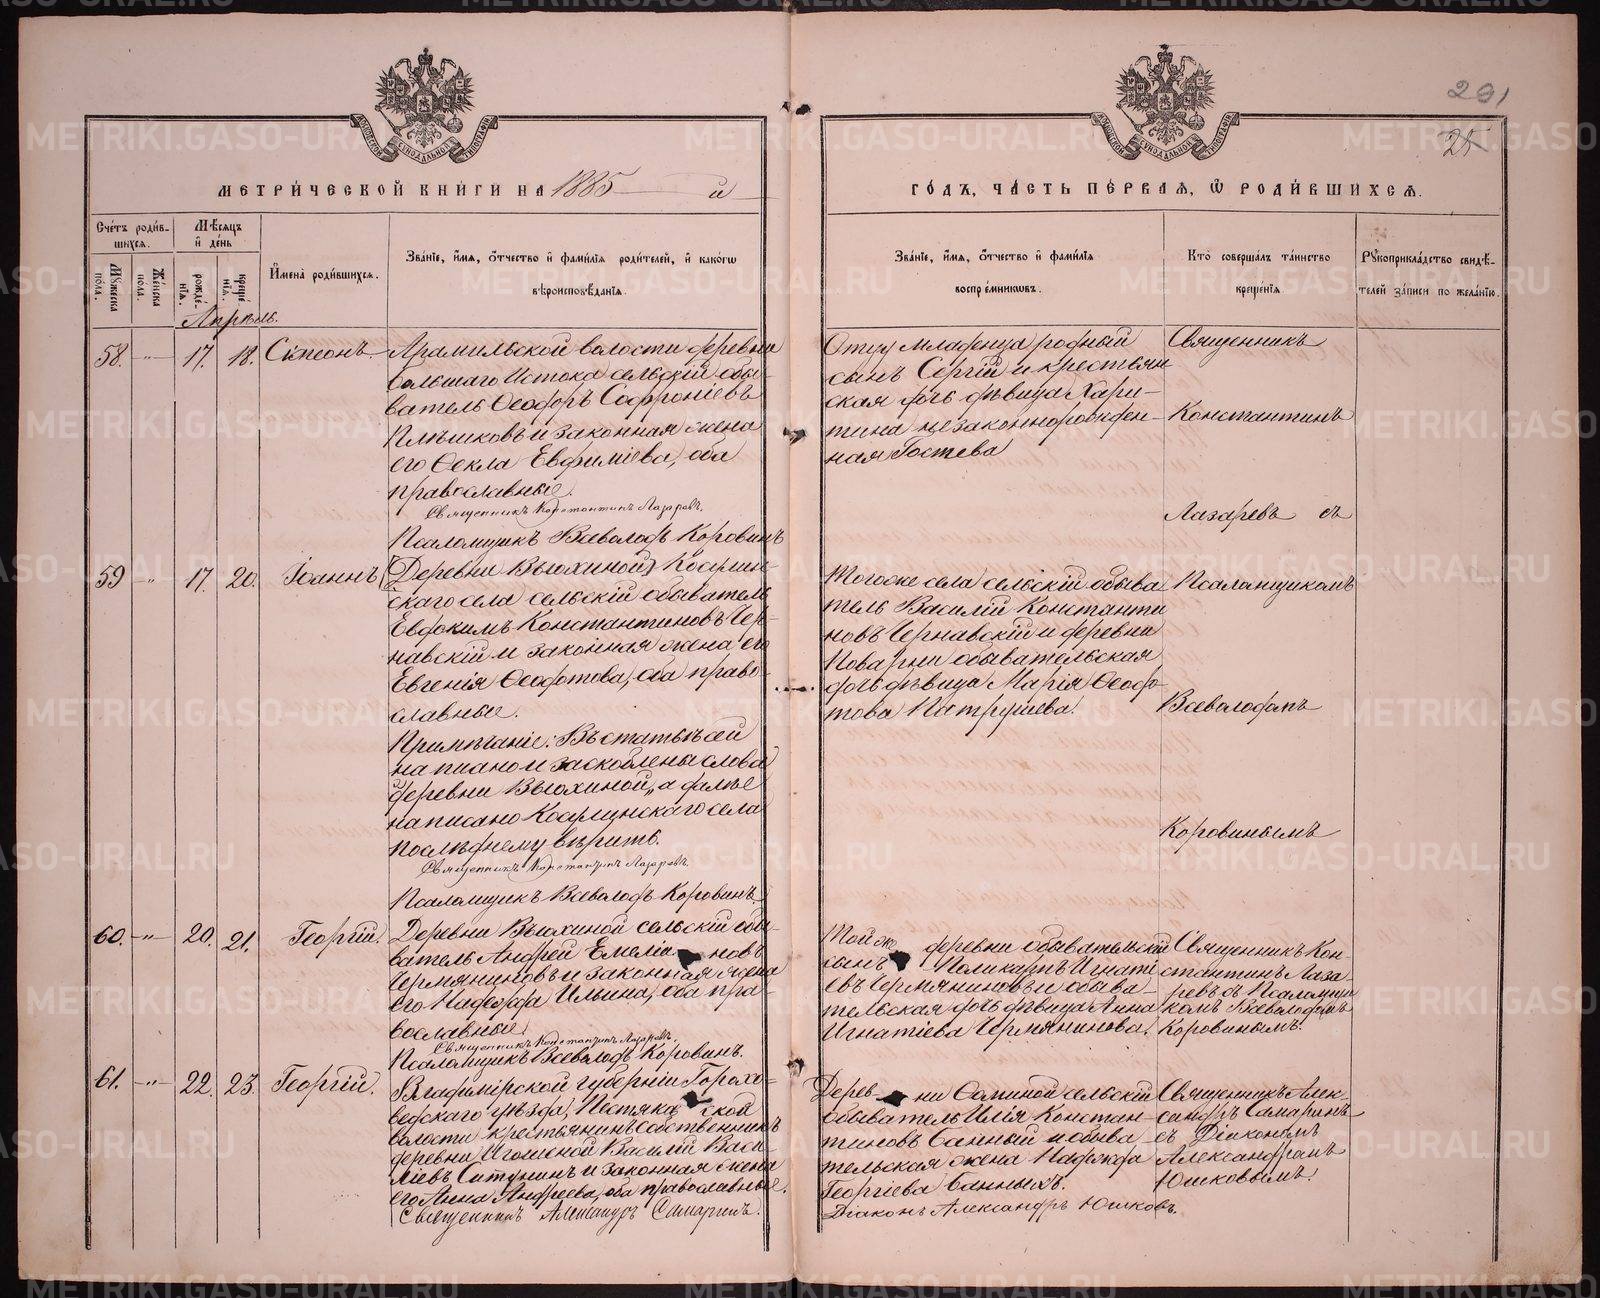 291
25
МЕТРИ́ЧЕСКОЙ КНИ́ГИ НА 1885 й
ГО́ДЪ, ЧА́СТЬ ПЕ́РВАЯ, Ѡ РОДИ́ВШИХСЯ.
Сче́тъ роди́в-
шихся.
Мѣ́сяцъ
и́ де́нь
Му́жеска по́ла.
Же́нска по́ла.
рожде́нія.
креще́нія.
И҆мена̀ роди́вшихся.
Зва́ніе, и҆́мя, о҆́тчество и҆ фами́лія роди́телей, и҆ како́гѡ
вѣроисповѣ́данія.
Зва́ніе, и҆́мя, о҆́тчество и҆ фами́лія
воспрїе́мниковъ.
Кто̀ соверша́лъ та́инство
креще́нія.
Рꙋкоприкла́дство свидѣ́-
телей за́писи по жела́нію.
Апрѣль.
58. " 17. 18. Симеонъ
Арамильской волости деревни
Большаго Истока сельскій обы-
ватель Ѳеодоръ Софроніевъ
Плѣшковъ и законная жена
его Ѳекла Евфиміева, оба
православные.
Священникъ Константинъ Лазаревъ.
Псаломщикъ Всеволодъ Коровинъ
Отцу младенца родный
сынъ Сергій и крестьян
ская дочь дѣвица Хари-
тина незаконнорожден-
ная Гостева
Священникъ
Константинъ
Лазаревъ съ
59 " 17. 20. Іоаннъ
(Деревни Вьюхиной) Косулин-
скаго села сельскій обыватель
Евдокимъ Константиновъ Чер-
навскій и законная жена его
Евгенія Ѳеодотова, оба право-
славные.
Примѣчаніе: Въ статьѣ сей
написано и заскоблены слова
"деревни Вьюхиной", а далѣе
написано Косулинскаго села
послѣднему вѣрить.
Священникъ Константинъ Лазаревъ.
Псаломщикъ Всеволодъ Коровинъ
Того же села сельскій обыва
тель Василій Константи
новъ Чернавскій и деревни
Поварни обывательская
дочь дѣвица Марія Ѳеодо-
това Патрушева.
Псаломщикомъ
Всеволодомъ
Коровинымъ
60. " 20. 21. Георгій.
Деревни Вьюхиной сельскій обы-
ватель Андрей Емеліановъ
Чермяниновъ и законная жена
его Надежда Ильина, оба пра-
вославные.
Священникъ Константинъ Лазаревъ.
Псаломщикъ Всеволодъ Коровинъ.
Той же деревни обывательскій
сынъ Поликарпъ Игнаті
евъ Чермяниновъ и обыва-
тельская дочь дѣвица Анна
Игнатіева Чермянинова.
Священникъ Кон-
стантинъ Лаза-
ревъ съ Псаломщи
комъ Всеволодомъ
Коровинымъ.
61. " 22. 23. Георгій.
Владимірской губерніи Горохо-
ведскаго уѣзда, Пестяковской
волости крестьянинъ собственникъ
деревни Игошеной Василій Васи-
льевъ Ситунинъ и законная жена
его Анна Андреева, оба православные.
Священникъ Александръ Самаринъ.
Деревни Сапиной сельскій
обыватель Илія Констан-
тиновъ Банный и обыва
тельская жена Надежда
Георгіева Банныхъ.
Діаконъ Александръ Юшковъ.
Священникъ Алек-
сандръ Самаринъ
съ Діакономъ
Александромъ
Юшковымъ.